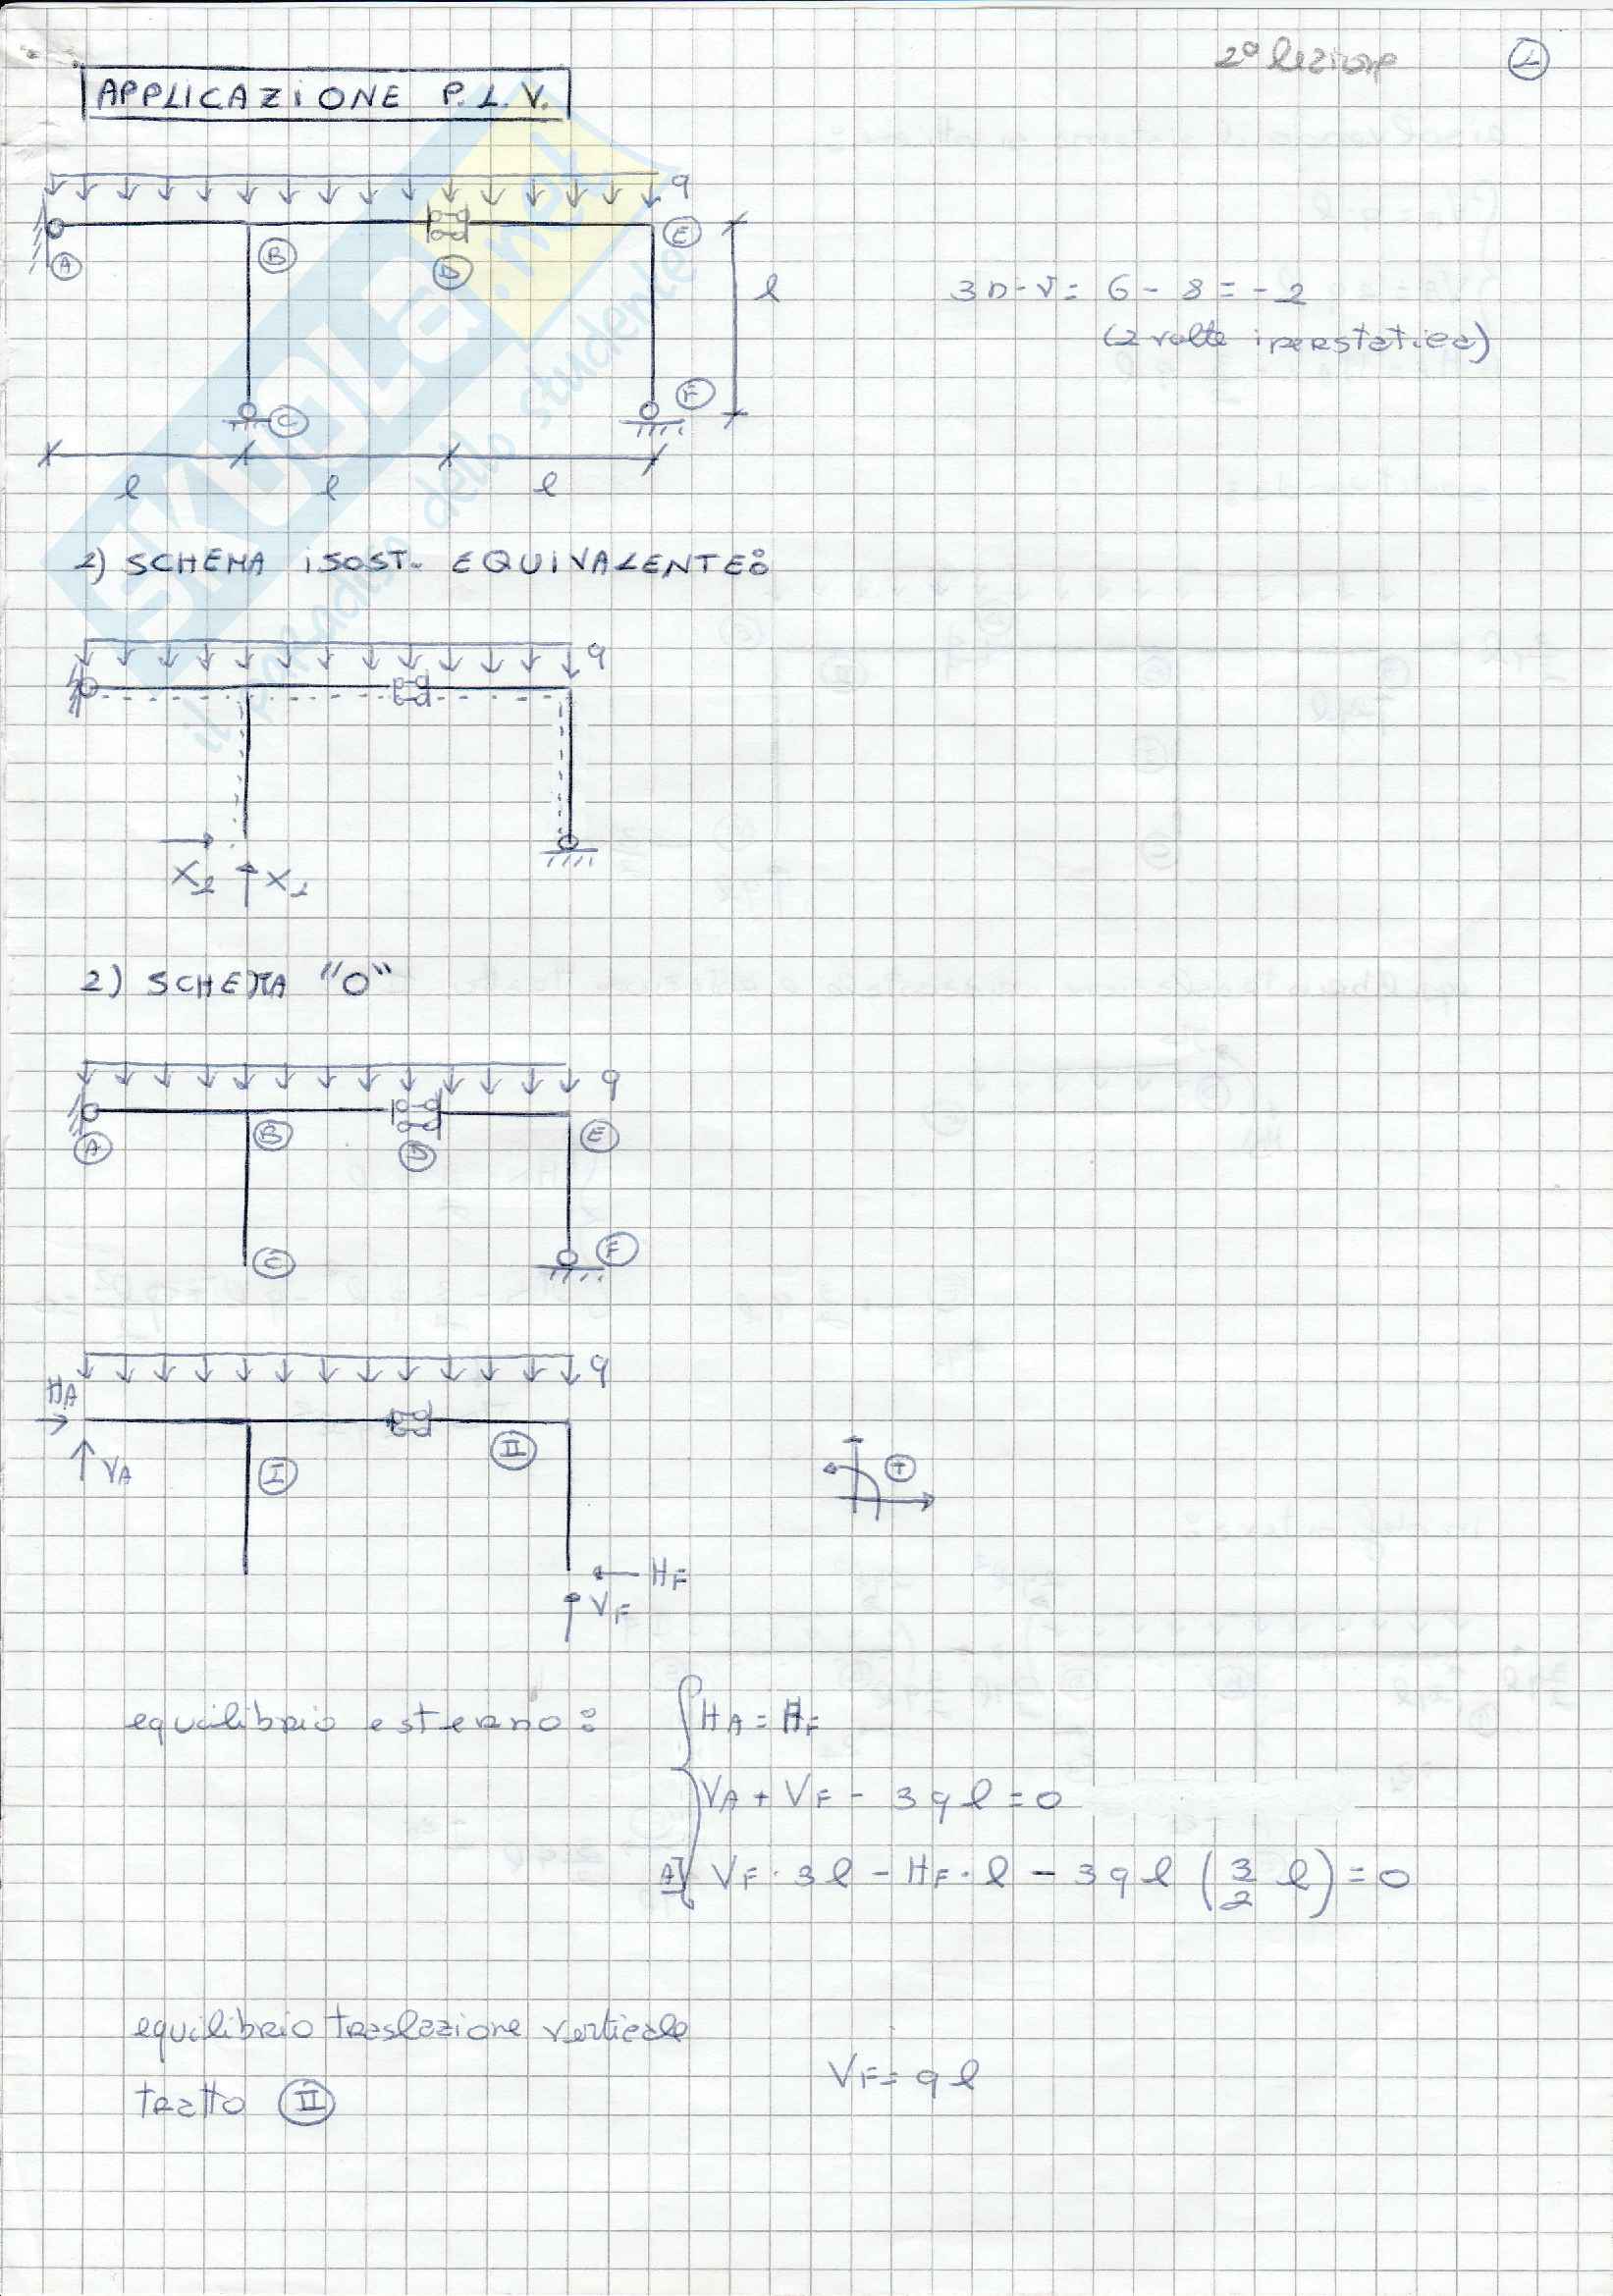 2ª lezione 1
APPLICAZIONE P.L.V.
q
A B D E
l
3n-v= 6-8=-2
(2 volte iperstatica)
C F
l l l
1) SCHEMA ISOST. EQUIVALENTE:
q
X2 X1
2) SCHEMA "0"
q
A B D E
C F
q
HA
VA I II +
HF
VF
equilibrio esterno: HA = HF
VA + VF - 3ql = 0
A] VF · 3l - HF · l - 3ql (3/2 l) = 0
equilibrio traslazione verticale
tratto II
VF = ql
SKUOLA.net
il paradiso dello studente